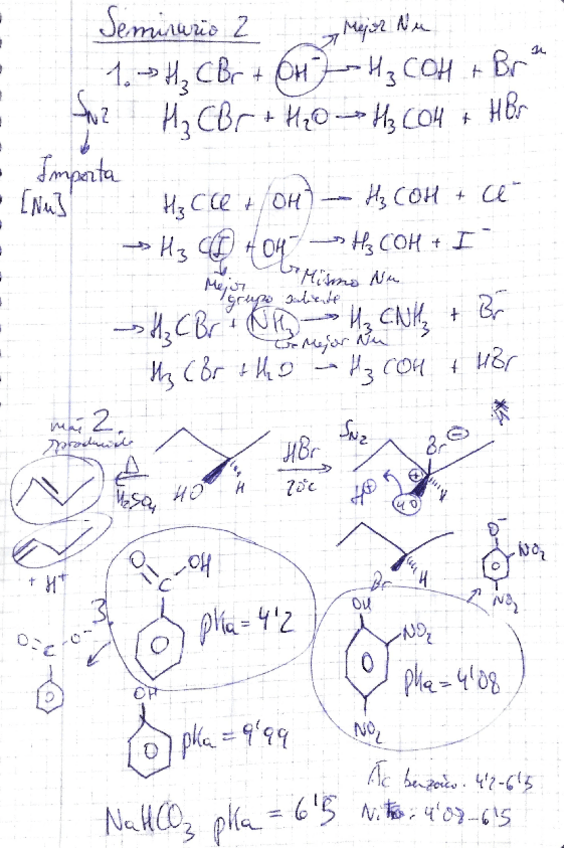 Seminario 2
Mejor Nu
1. → H₃CBr + OH⁻ → H₃COH + Br⁻
SN2
H₃CBr + H₂O → H₃COH + HBr
Importa
[Nu]
H₃CCl + OH⁻ → H₃COH + Cl⁻
→ H₃CI + OH⁻ → H₃COH + I⁻
Mejor grupo saliente
Mismo Nu
→ H₃CBr + NH₃ → H₃CNH₃ + Br⁻
Mejor Nu
H₃CBr + H₂O → H₃COH + HBr
2.
más
Δ
H₂SO₄
HO
H
HBr
SN2
Br ⊖
⊕
H⊕
HO
H
+ H⁺
Br
H
O⁻
NO₂
NO₂
3.
O
C
OH
pKa = 4'2
O=C
O⁻
OH
NO₂
NO₂
pKa = 4'08
OH
pKa = 9'99
Ác benzóico: 4'2-6'5
NaHCO₃ pKa = 6'5
4'08-6'5